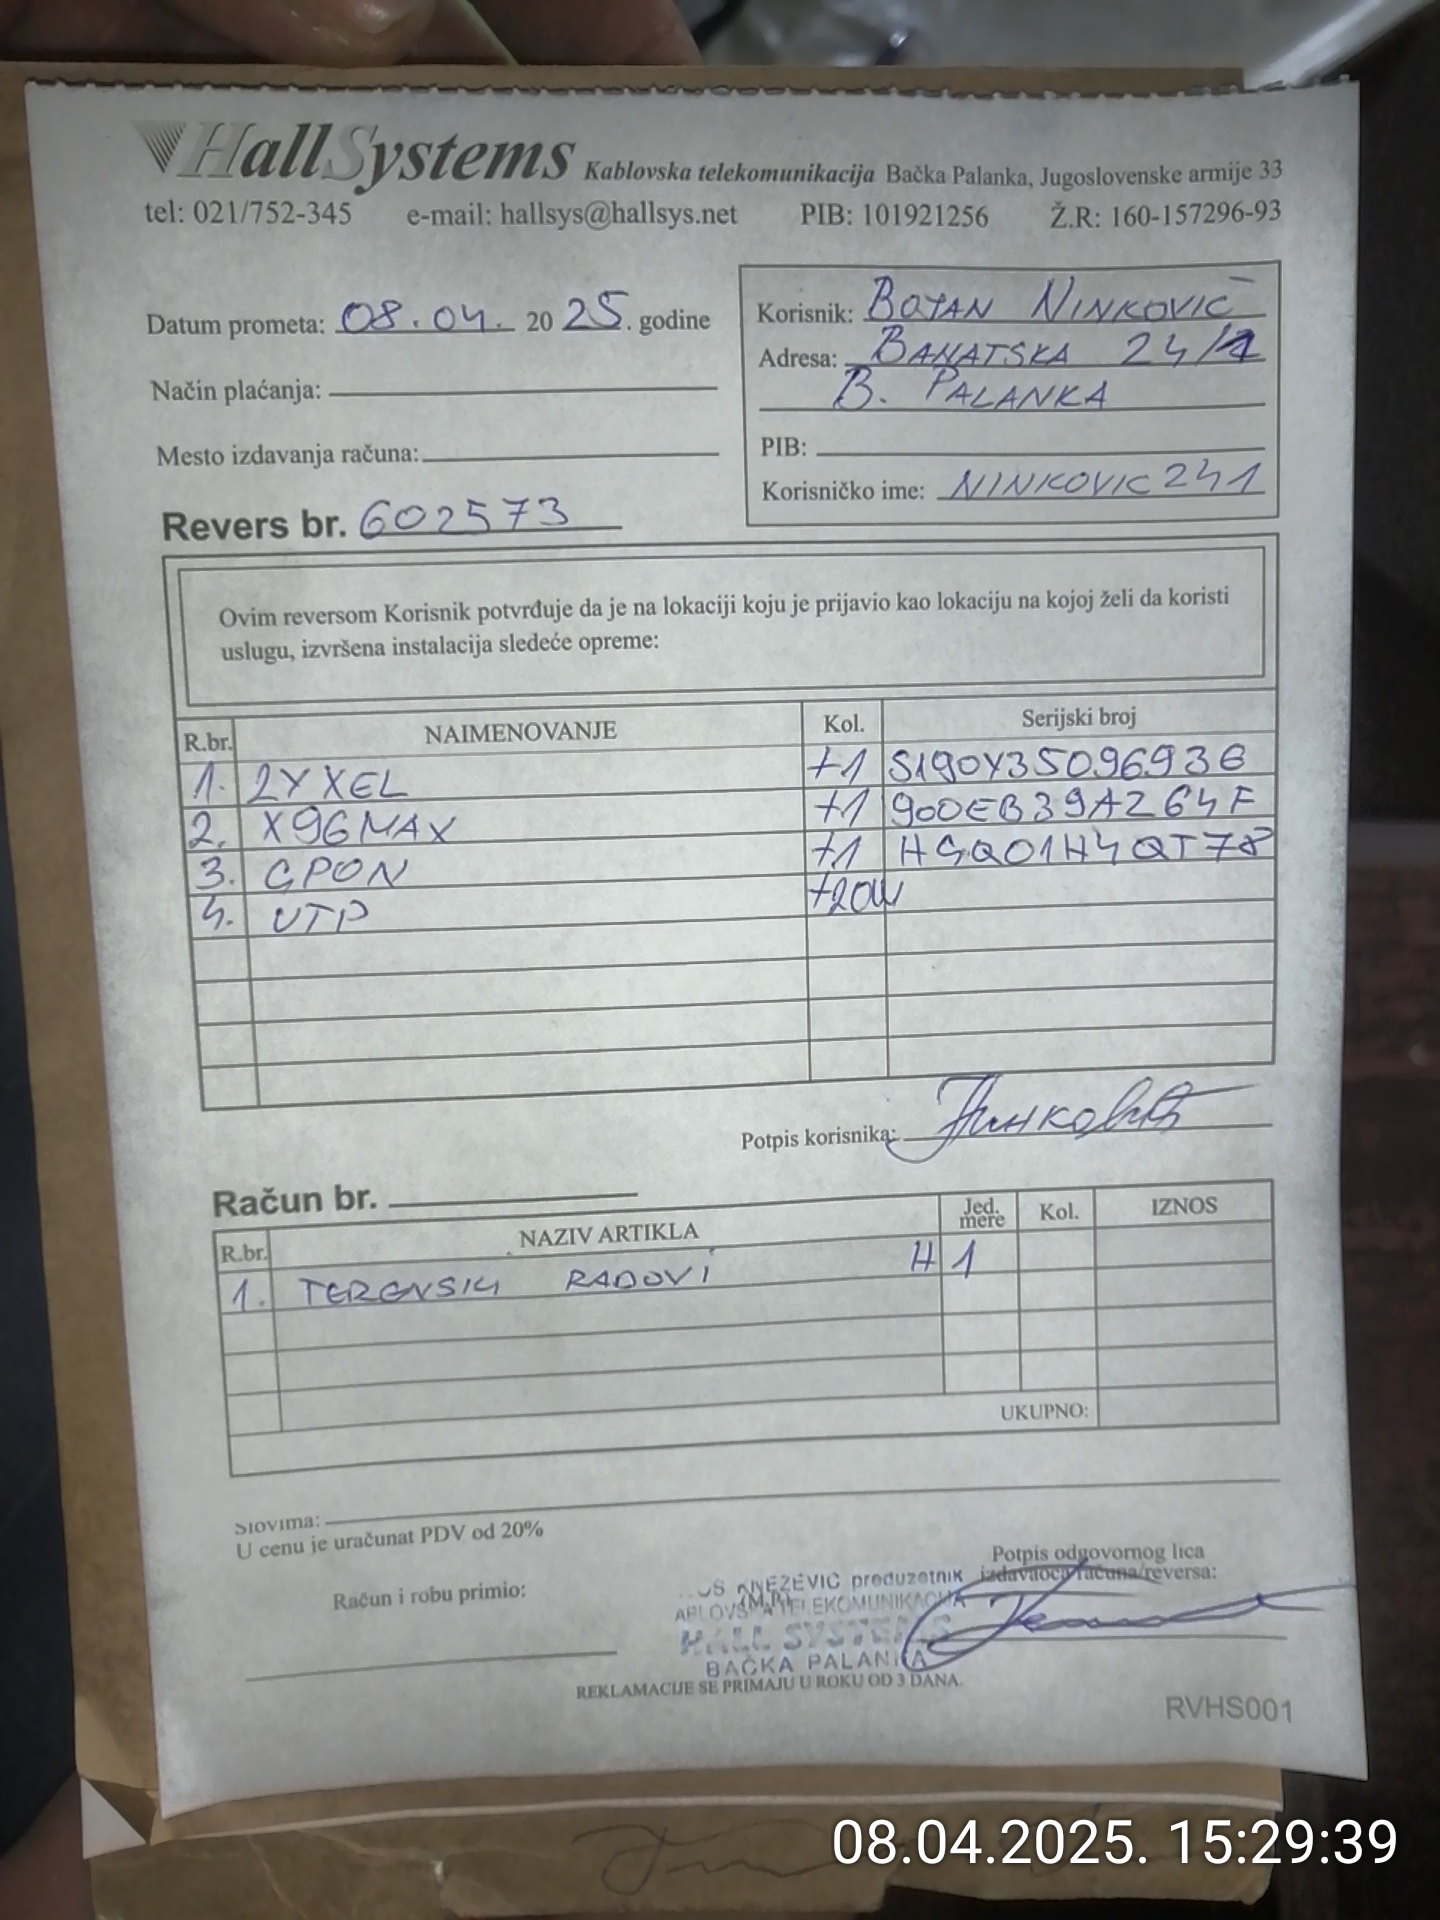 HallSystems Kablovska telekomunikacija Bačka Palanka, Jugoslovenske armije 33
tel: 021/752-345 e-mail: hallsys@hallsys.net PIB: 101921256 Ž.R: 160-157296-93
Datum prometa: 08.04. 2025. godine
Način plaćanja:
Mesto izdavanja računa:
Revers br. 602573
Korisnik: BOJAN NINKOVIĆ
Adresa: BANATSKA 24/1
B. PALANKA
PIB:
Korisničko ime: NINKOVIC241
Ovim reversom Korisnik potvrđuje da je na lokaciji koju je prijavio kao lokaciju na kojoj želi da koristi
uslugu, izvršena instalacija sledeće opreme:
R.br. NAIMENOVANJE Kol. Serijski broj
1. ZYXEL +1 S190Y35096936
2. X96MAX +1 900EB39A264F
3. GPON +1 HGQ01H4QT78
4. UTP +20M
Potpis korisnika: Нинковић
Račun br.
R.br. NAZIV ARTIKLA Jed. mere Kol. IZNOS
1. TERENSKI RADOVI H 1
UKUPNO:
Slovima:
U cenu je uračunat PDV od 20%
Račun i robu primio:
Potpis odgovornog lica
izdavaoca računa/reversa:
KNEŽEVIĆ preduzetnik
(M.P.)
TELEKOMUNIKACIJA
HALL SYSTEMS
BAČKA PALANKA
REKLAMACIJE SE PRIMAJU U ROKU OD 3 DANA.
RVHS001
08.04.2025. 15:29:39